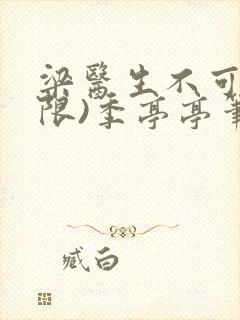 梁醫生不可
限)季亭亭筆
臧白